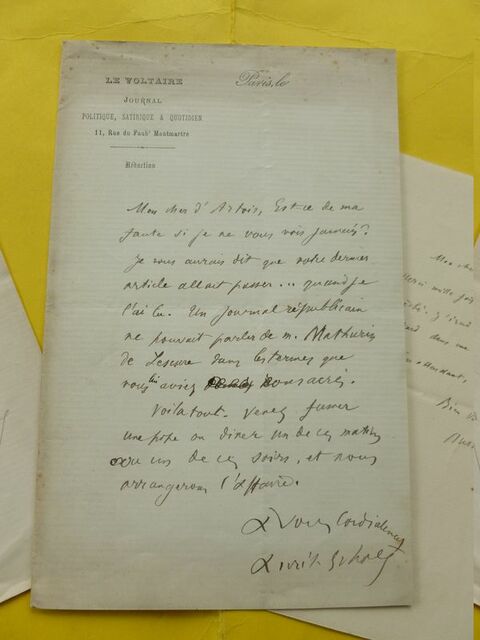 LE VOLTAIRE
JOURNAL
POLITIQUE, SATIRIQUE & QUOTIDIEN
11, Rue du Faubg Montmartre
Rédaction
Paris, le
Mon cher d'Artois, Est-ce de ma
faute si je ne vous vois jamais?
Je vous aurais dit que votre dernier
article allait passer... quand je
l'ai lu. Un journal républicain
ne pouvait parler de M. Mathurin
de Lescure dans les termes que
vous lui aviez consacrés.
Voilà tout. Venez fumer
une pipe ou diner un de ces matins
ou un de ces soirs, et nous
arrangerons l'affaire.
A vous Cordialement
Aurélien Scholl
Mon cher
Merci mille fois
dans une
attendant,
Bien